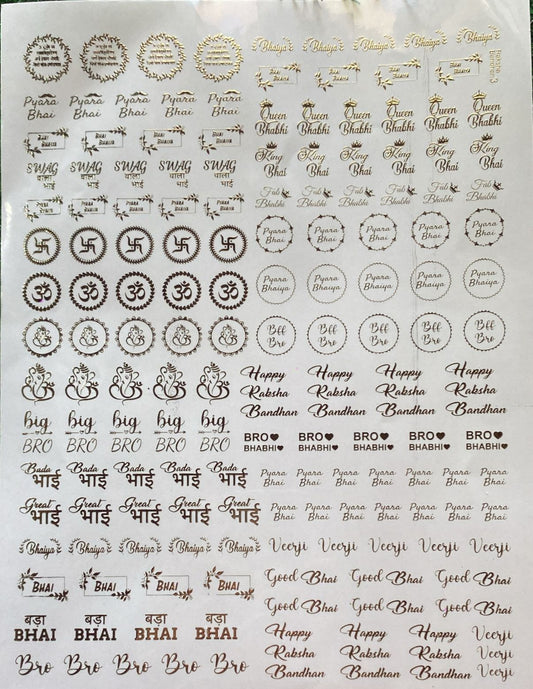 Pyara Pyara Pyara Pyara Pyara
Bhai Bhai Bhai Bhai Bhai
SWAG SWAG SWAG SWAG SWAG
वाला वाला वाला वाला वाला
भाई भाई भाई भाई भाई
PYARA PYARA PYARA PYARA PYARA
BHAIYA BHAIYA BHAIYA BHAIYA BHAIYA
ॐ ॐ ॐ ॐ ॐ
big big big big big
BRO BRO BRO BRO BRO
Bada Bada Bada Bada Bada
भाई भाई भाई भाई भाई
Great Great Great Great Great
भाई भाई भाई भाई भाई
Bhaiya Bhaiya Bhaiya Bhaiya Bhaiya
BHAI BHAI BHAI BHAI
बड़ा बड़ा बड़ा बड़ा
BHAI BHAI BHAI BHAI
Bro Bro Bro Bro Bro
Bhaiya Bhaiya Bhaiya Bhaiya Bhaiya
Queen Queen Queen Queen Queen Queen
Bhabhi Bhabhi Bhabhi Bhabhi Bhabhi Bhabhi
King King King King King King
Bhai Bhai Bhai Bhai Bhai Bhai
Fab Fab Fab Fab Fab Fab
Bhabhi Bhabhi Bhabhi Bhabhi Bhabhi Bhabhi
Pyara Pyara Pyara Pyara Pyara
Bhai Bhai Bhai Bhai Bhai
Pyara Pyara Pyara Pyara Pyara
Bhaiya Bhaiya Bhaiya Bhaiya Bhaiya
Bff Bff Bff Bff Bff
Bro Bro Bro Bro Bro
Happy Happy Happy Happy
Raksha Raksha Raksha Raksha
Bandhan Bandhan Bandhan Bandhan
BRO BRO BRO BRO BRO
BHABHI BHABHI BHABHI BHABHI BHABHI
Pyara Pyara Pyara Pyara Pyara Pyara Pyara
Bhai Bhai Bhai Bhai Bhai Bhai Bhai
Pyara Pyara Pyara Pyara Pyara Pyara Pyara
Bhai Bhai Bhai Bhai Bhai Bhai Bhai
Veerji Veerji Veerji Veerji Veerji
Good Bhai Good Bhai Good Bhai
Good Bhai Good Bhai Good Bhai
Happy Happy Happy Veerji
Raksha Raksha Raksha Veerji
Bandhan Bandhan Bandhan Veerji